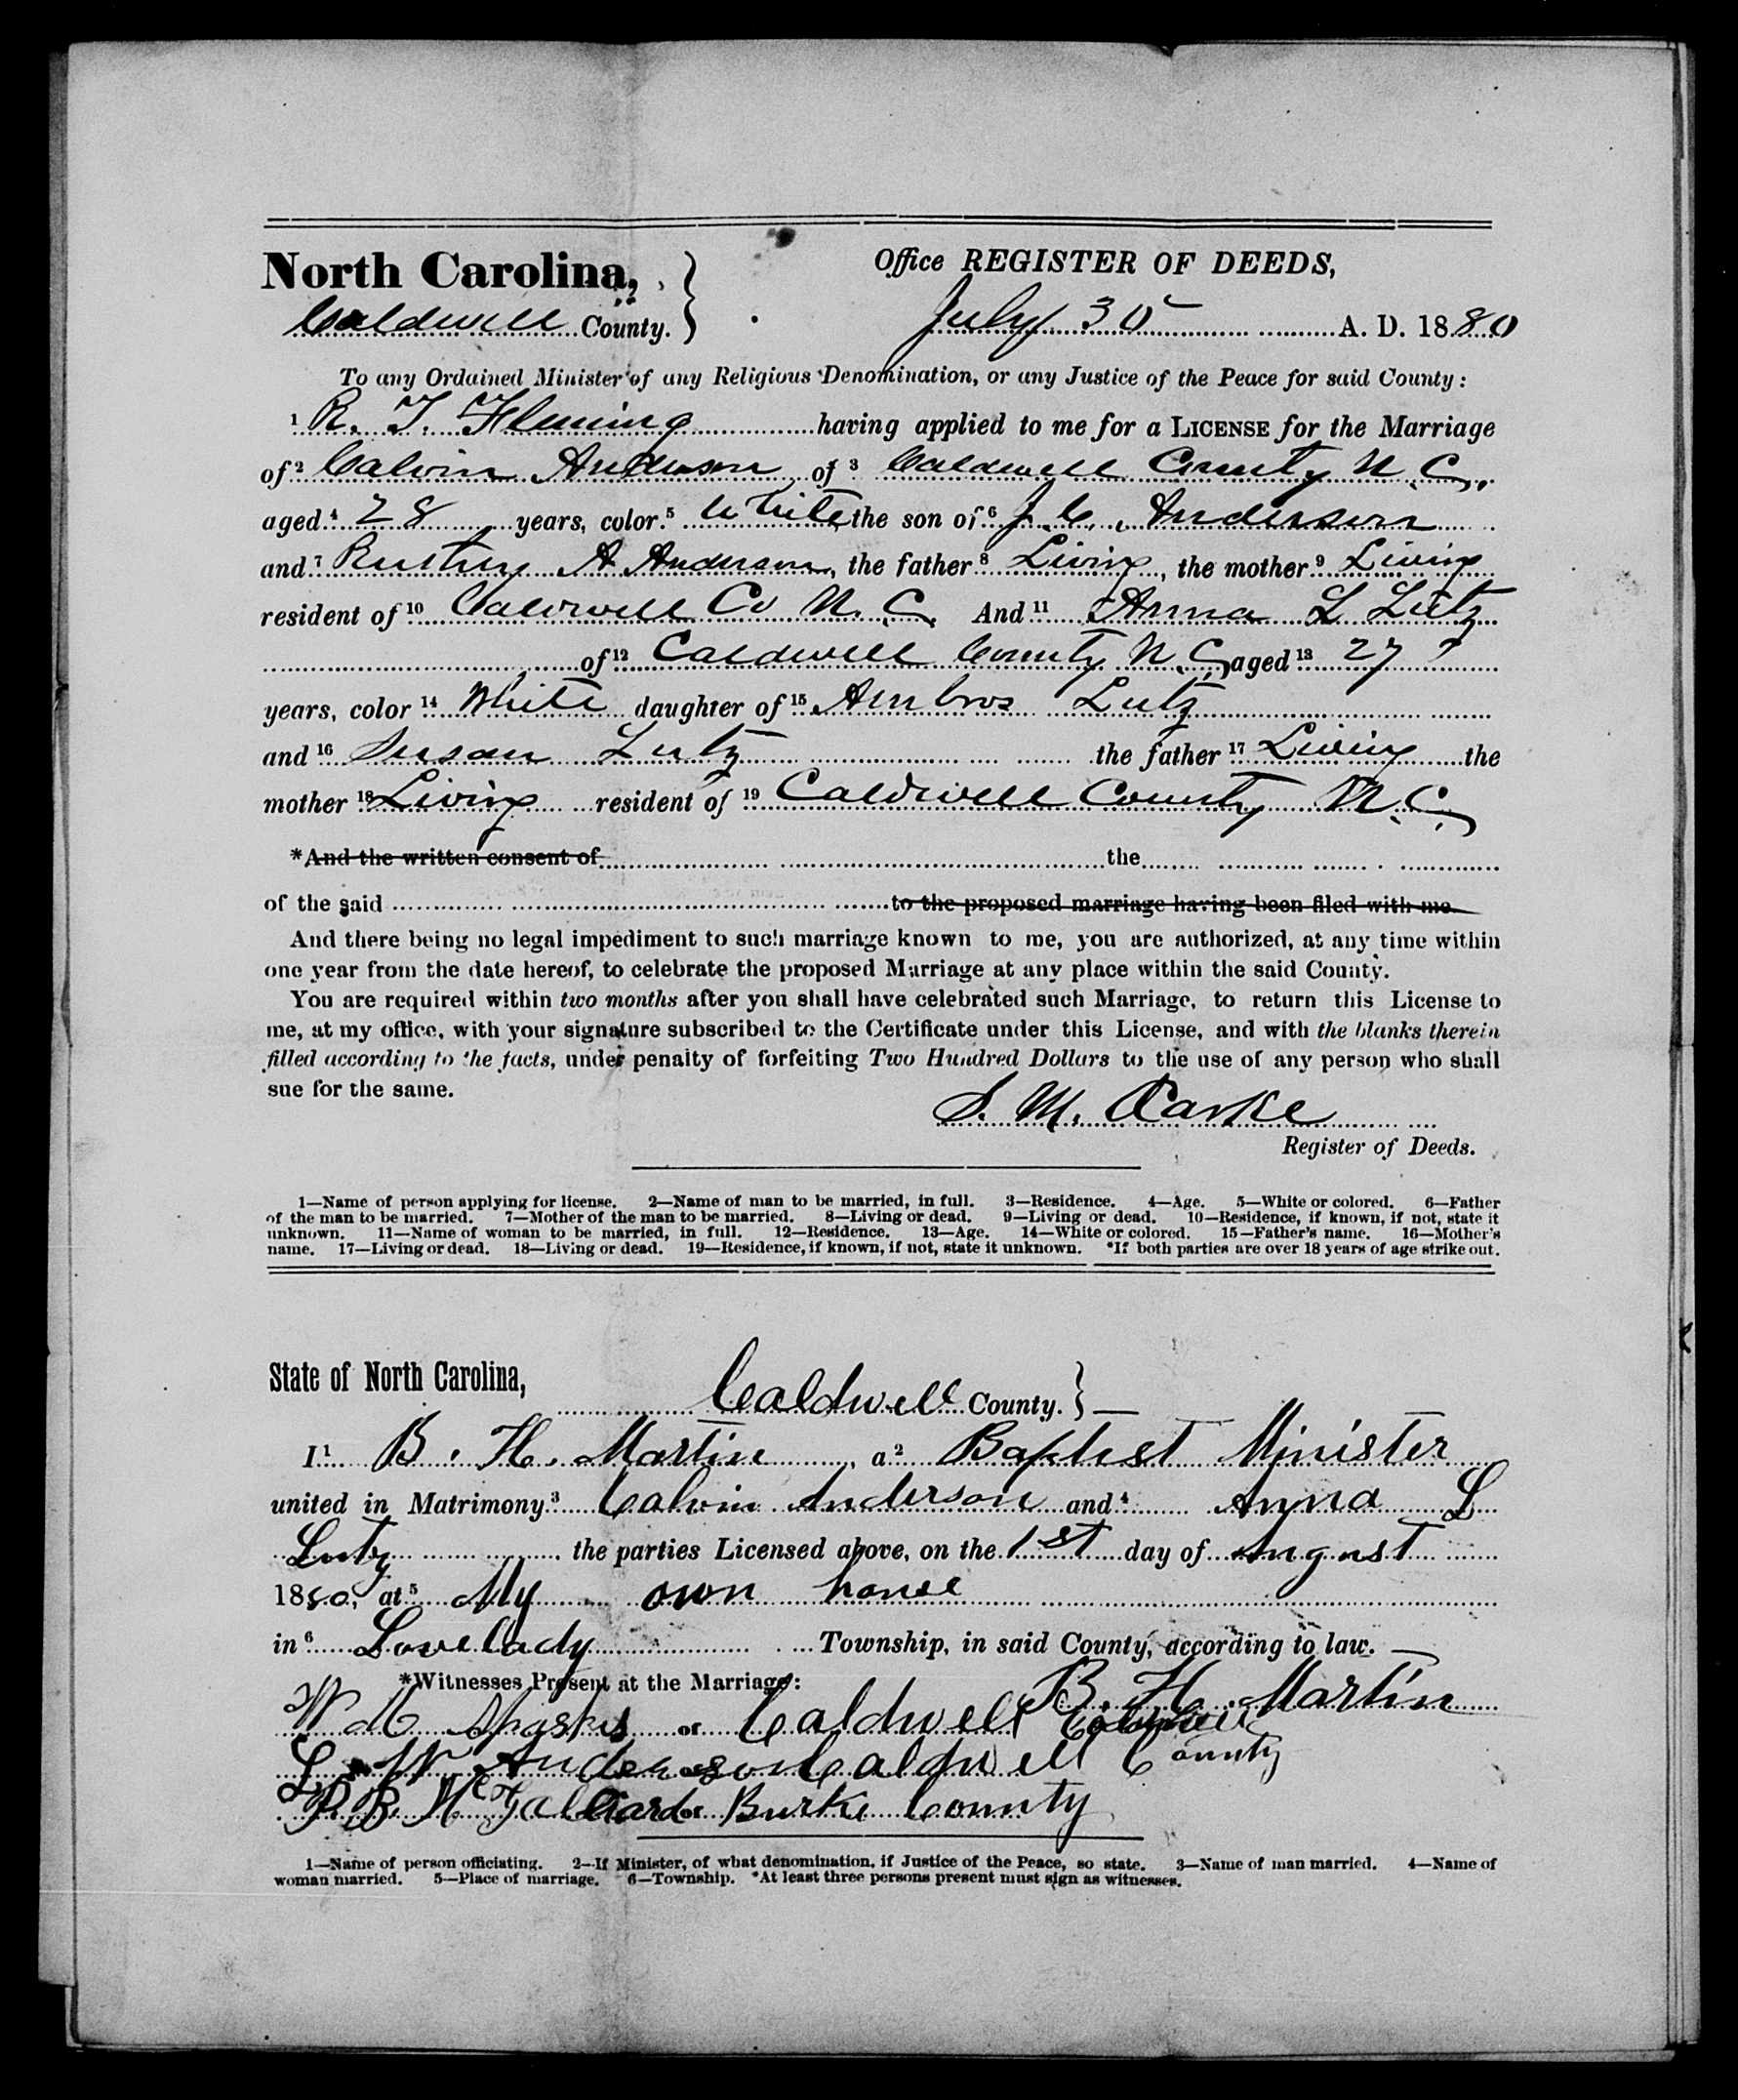 North Carolina,
Office REGISTER OF DEEDS,
Caldwell County.
July 30 A. D. 1880
To any Ordained Minister of any Religious Denomination, or any Justice of the Peace for said County:
1 R. T. Fleming having applied to me for a LICENSE for the Marriage
of 2 Calvin Anderson of 3 Caldwell County N. C.,
aged 4 28 years, color 5 White, the son of 6 J. C. Anderson
and 7 A Anderson, the father 8 Living, the mother 9 Living
resident of 10 Caldwell Co N. C. And 11 Anna L Lutz
of 12 Caldwell County N. C, aged 13 27
years, color 14 White daughter of 15 Ambros Lutz
and 16 Susan Lutz the father 17 Living the
mother 18 Living resident of 19 Caldwell County N. C.
*And the written consent of the
of the said to the proposed marriage having been filed with me.
And there being no legal impediment to such marriage known to me, you are authorized, at any time within
one year from the date hereof, to celebrate the proposed Marriage at any place within the said County.
You are required within two months after you shall have celebrated such Marriage, to return this License to
me, at my office, with your signature subscribed to the Certificate under this License, and with the blanks therein
filled according to the facts, under penalty of forfeiting Two Hundred Dollars to the use of any person who shall
sue for the same.
S. M.
Register of Deeds.
1—Name of person applying for license. 2—Name of man to be married, in full. 3—Residence. 4—Age. 5—White or colored. 6—Father
of the man to be married. 7—Mother of the man to be married. 8—Living or dead. 9—Living or dead. 10—Residence, if known, if not, state it
unknown. 11—Name of woman to be married, in full. 12—Residence. 13—Age. 14—White or colored. 15—Father's name. 16—Mother's
name. 17—Living or dead. 18—Living or dead. 19—Residence, if known, if not, state it unknown. *If both parties are over 18 years of age strike out.
State of North Carolina,
Caldwell County.
I 1 B. H. Martin, a 2 Baptist Minister
united in Matrimony 3 Calvin Anderson and 4 Anna L
Lutz the parties Licensed above, on the 1st day of August
1880, at 5 My own house
in 6 Lovelady Township, in said County, according to law.
*Witnesses Present at the Marriage:
B. H. Martin
W M Sparks of Caldwell
L W Anderson of Caldwell County
P B McGalliard of Burke County
1—Name of person officiating. 2—If Minister, of what denomination, if Justice of the Peace, so state. 3—Name of man married. 4—Name of
woman married. 5—Place of marriage. 6—Township. *At least three persons present must sign as witnesses.